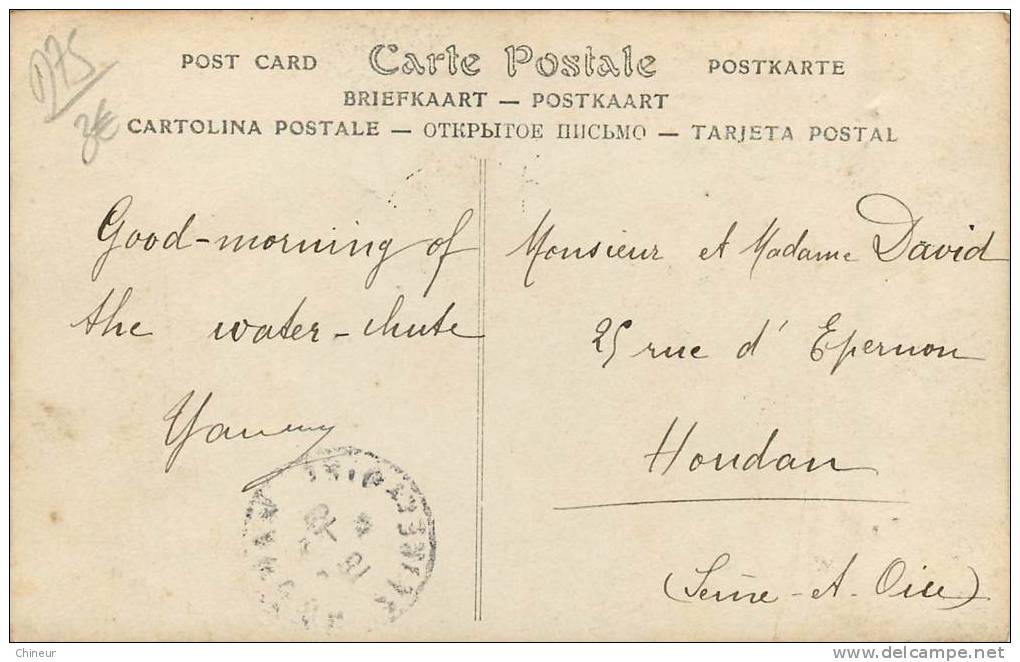 D75
3€
POST CARD Carte Postale POSTKARTE
BRIEFKAART — POSTKAART
CARTOLINA POSTALE — ОТКРЫТОЕ ПИСЬМО — TARJETA POSTAL
Good-morning of
the water-chute
Monsieur et Madame David
25 rue d'Epernon
Houdan
(Seine-et-Oise)
Chineur
www.delcampe.net